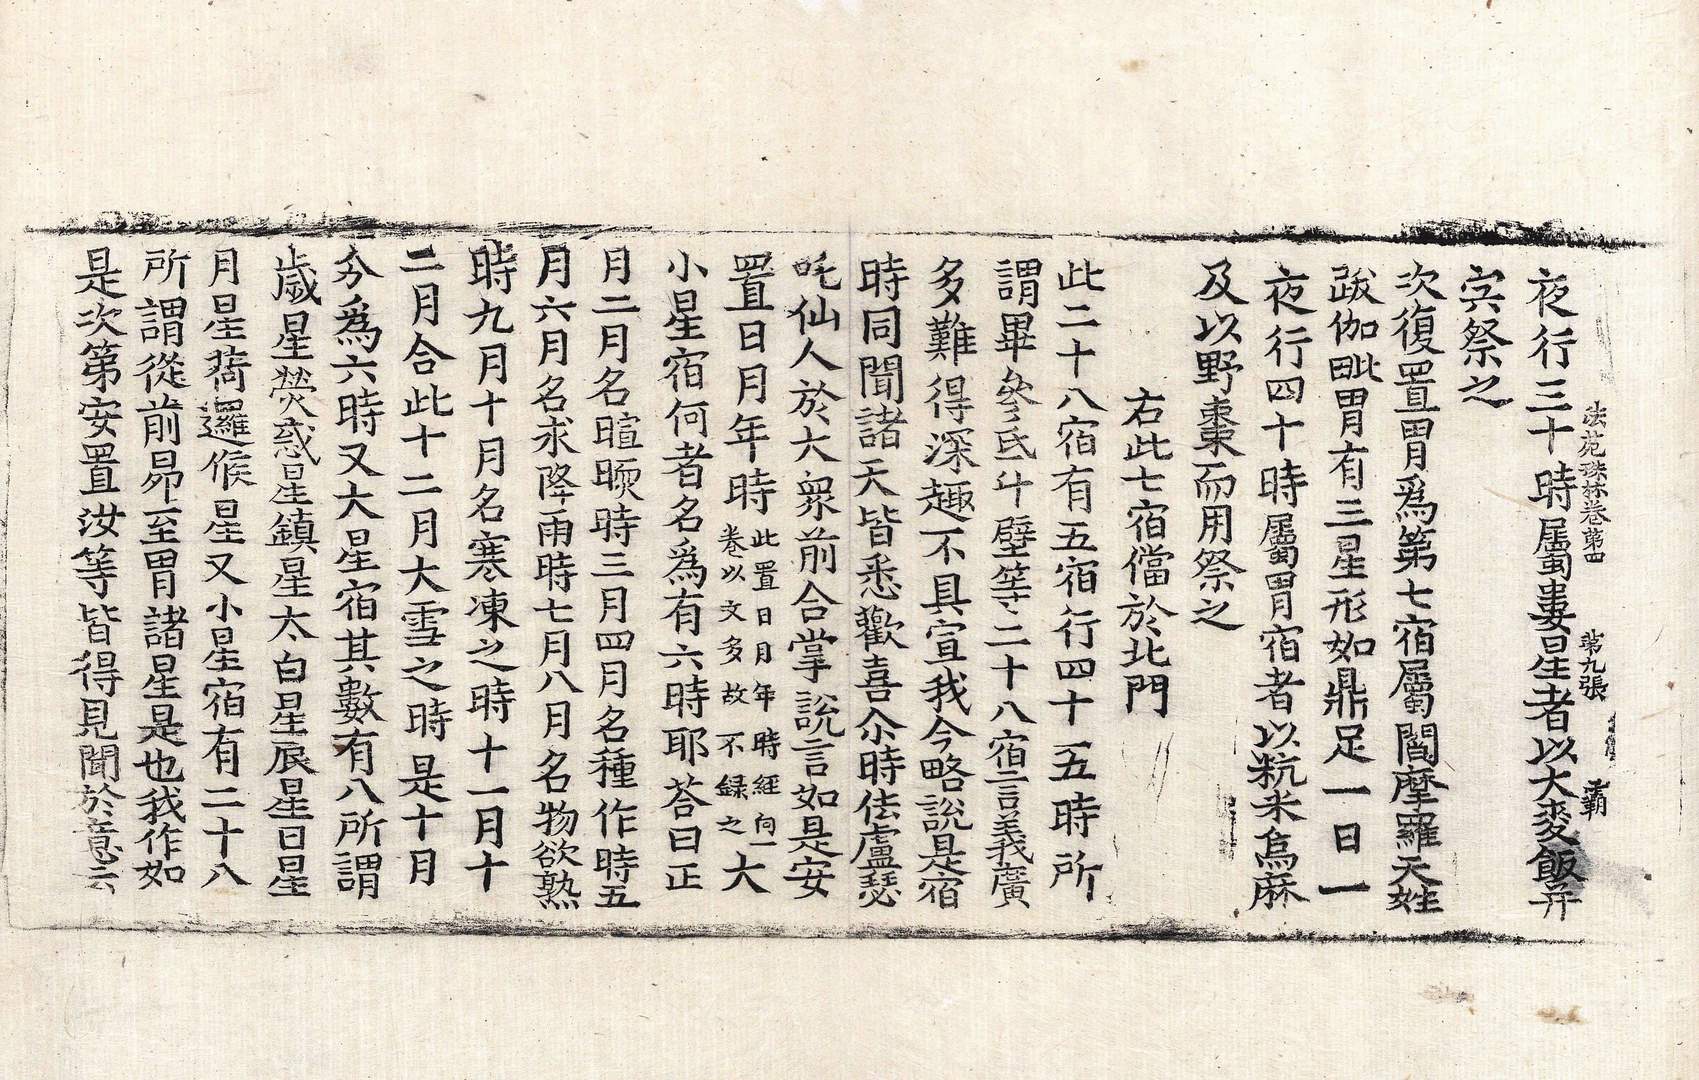 法苑珠林卷第四 第九張 霸
夜行三十時屬婁星者以大麥飯幷
宍祭之
次復置胃爲第七宿屬閻摩羅天姓
跋伽毗胃有三星形如鼎足一日一
夜行四十時屬胃宿者以秔米烏麻
及以野棗而用祭之
右此七宿當於北門
此二十八宿有五宿行四十五時所
謂畢參氐斗壁等二十八宿言義廣
多難得深趣不具宣我今略說是宿
時同聞諸天皆悉歡喜尒時佉盧瑟
吒仙人於大衆前合掌說言如是安
置日月年時此置日月年時經向一卷以文多故不録之大
小星宿何者名爲有六時耶荅曰正
月二月名暄暖時三月四月名種作時五
月六月名求降雨時七月八月名物欲熟
時九月十月名寒凍之時十一月十
二月合此十二月大雪之時是十月
分爲六時又大星宿其數有八所謂
歲星熒惑星鎮星太白星辰星日星
月星荷邏睺星又小星宿有二十八
所謂從前昴至胃諸星是也我作如
是次第安置汝等皆得見聞於意云